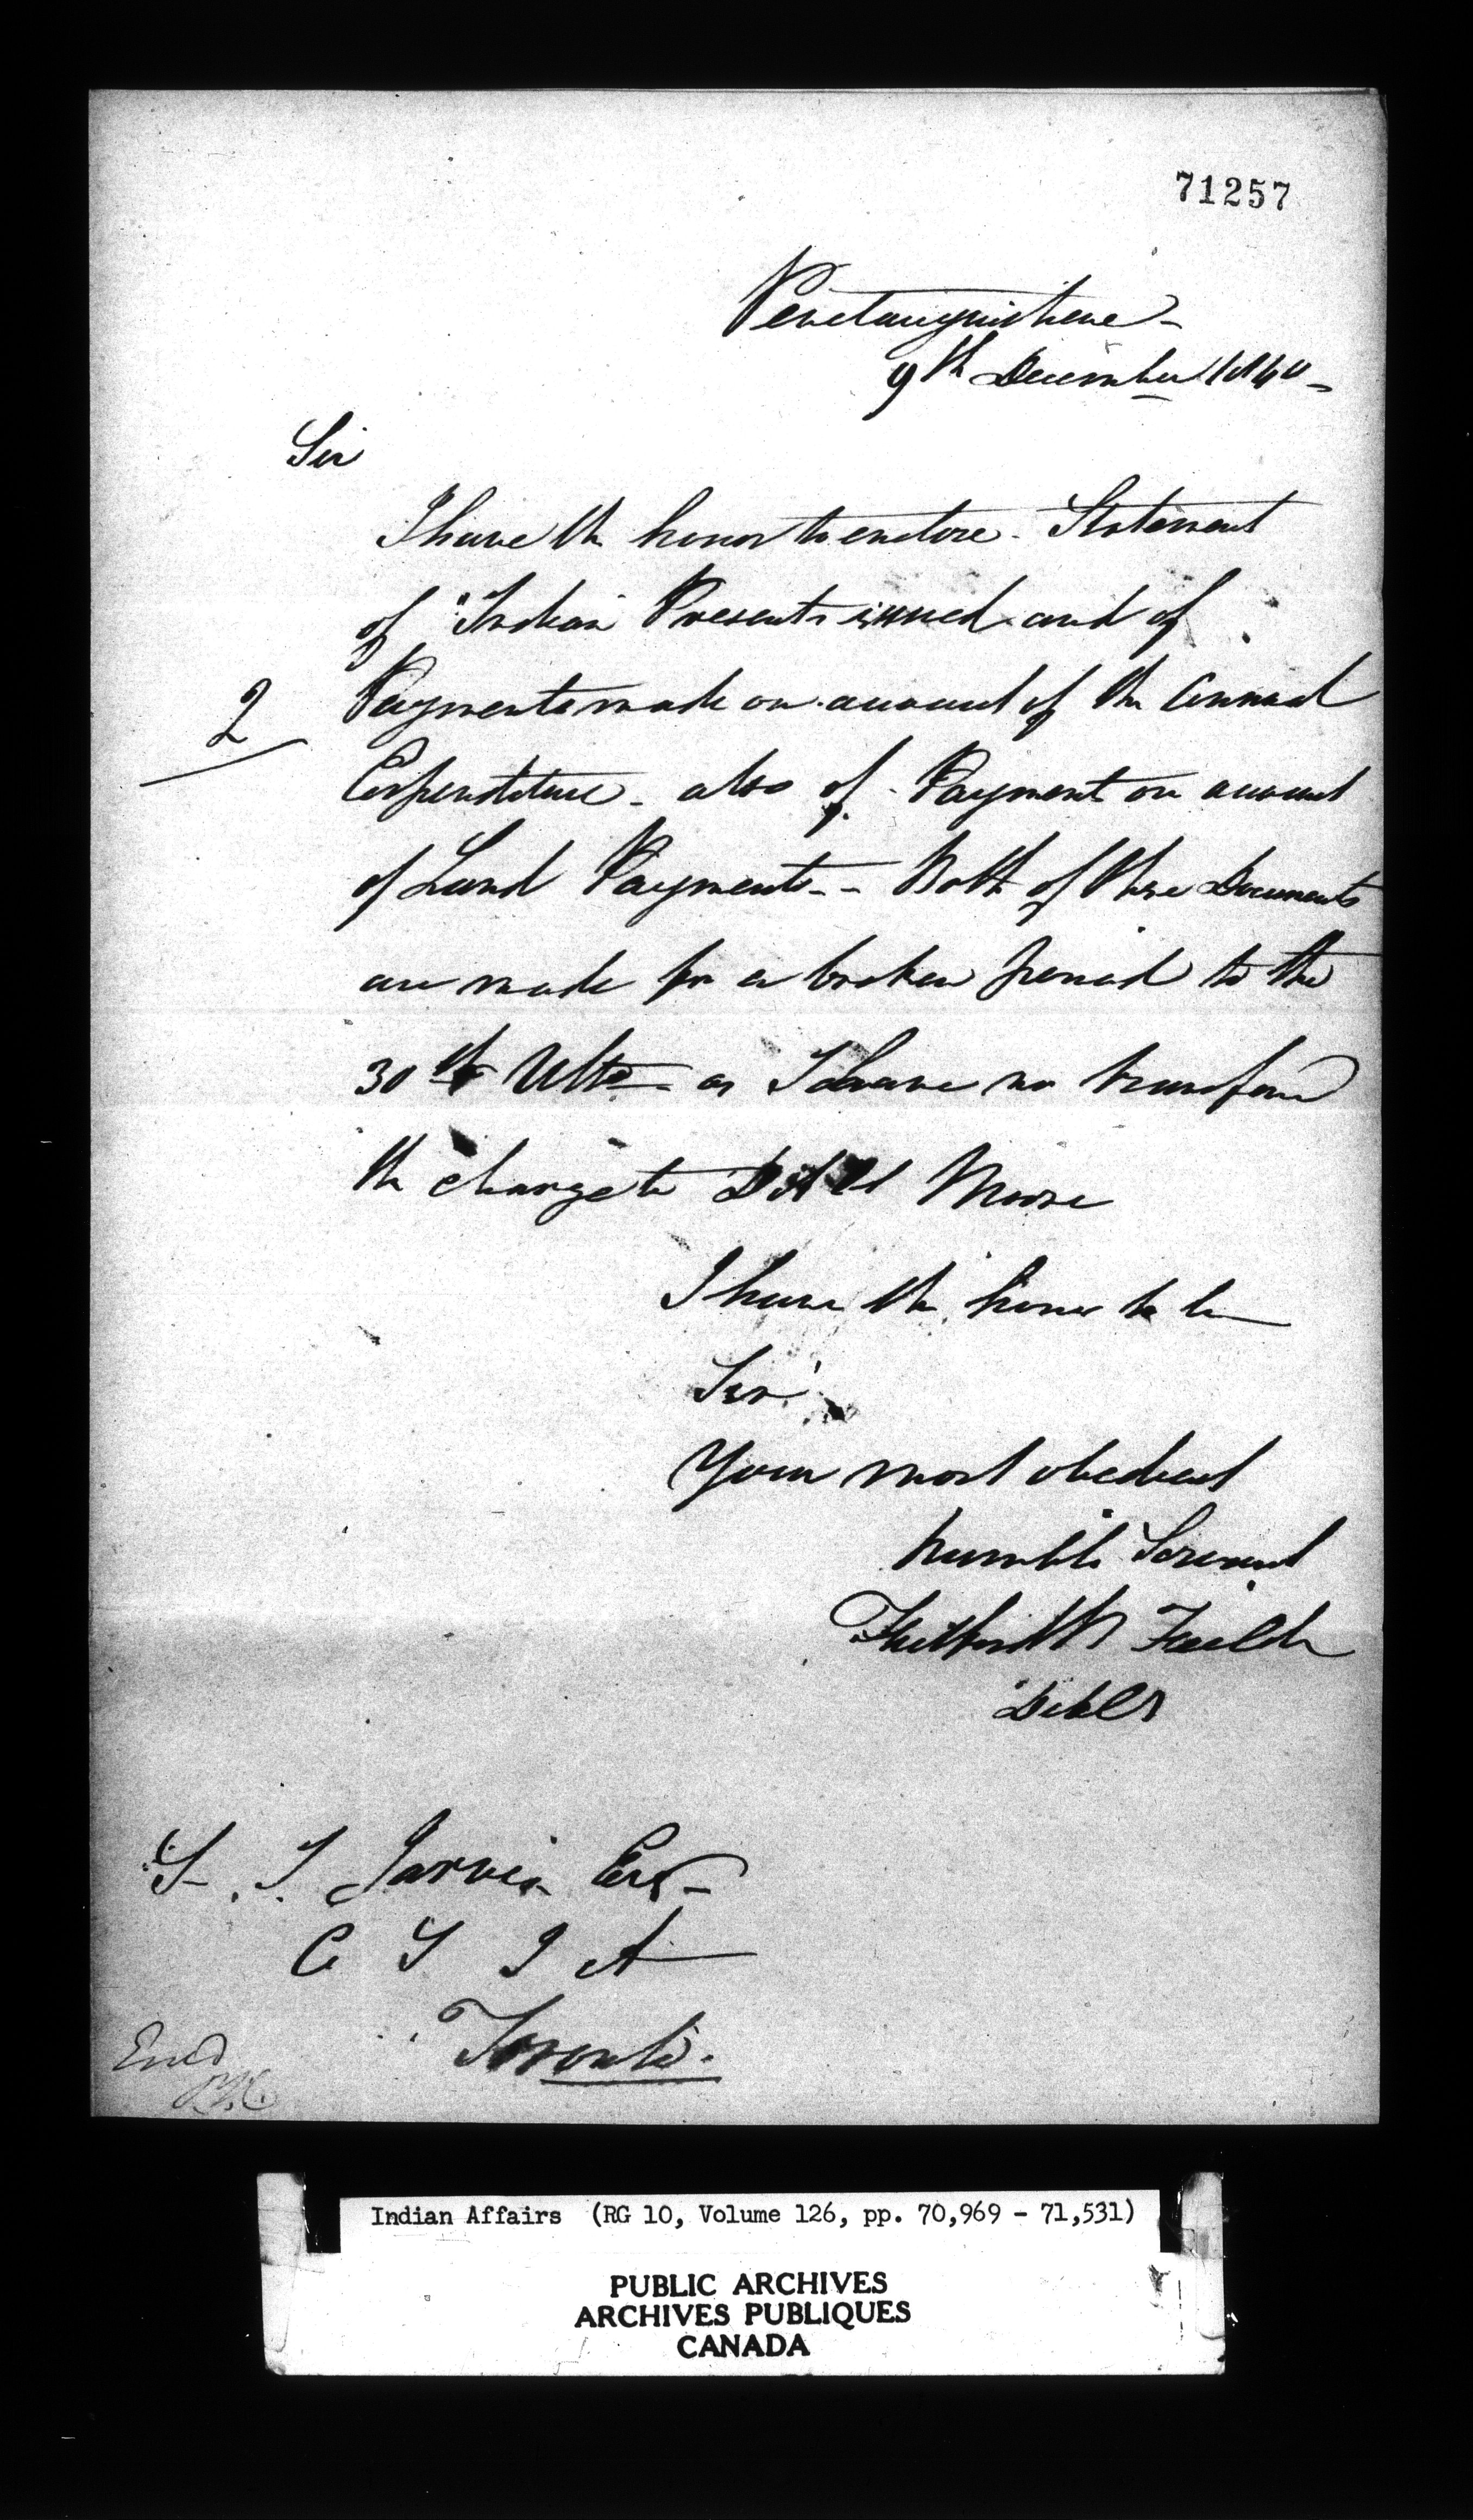 71257
Penetanguishene -
9th December 1840 -
Sir
I have the honor to enclose - Statement
of Indian Presents issued and of
2
Payments made on account of the Annual
Expenditure - also of - Payment on account
of Land Payments - - Both of these Documents
are made for a broken period to the
30th Ulto - as I have no transfer
the charge to Moore
I have the honor to be
Sir
Your most obedient
humble Servant
S. J. Jarvis Esq -
C S I A
Toronto.
Ent'd
Indian Affairs (RG 10, Volume 126, pp. 70,969 - 71,531)
PUBLIC ARCHIVES
ARCHIVES PUBLIQUES
CANADA